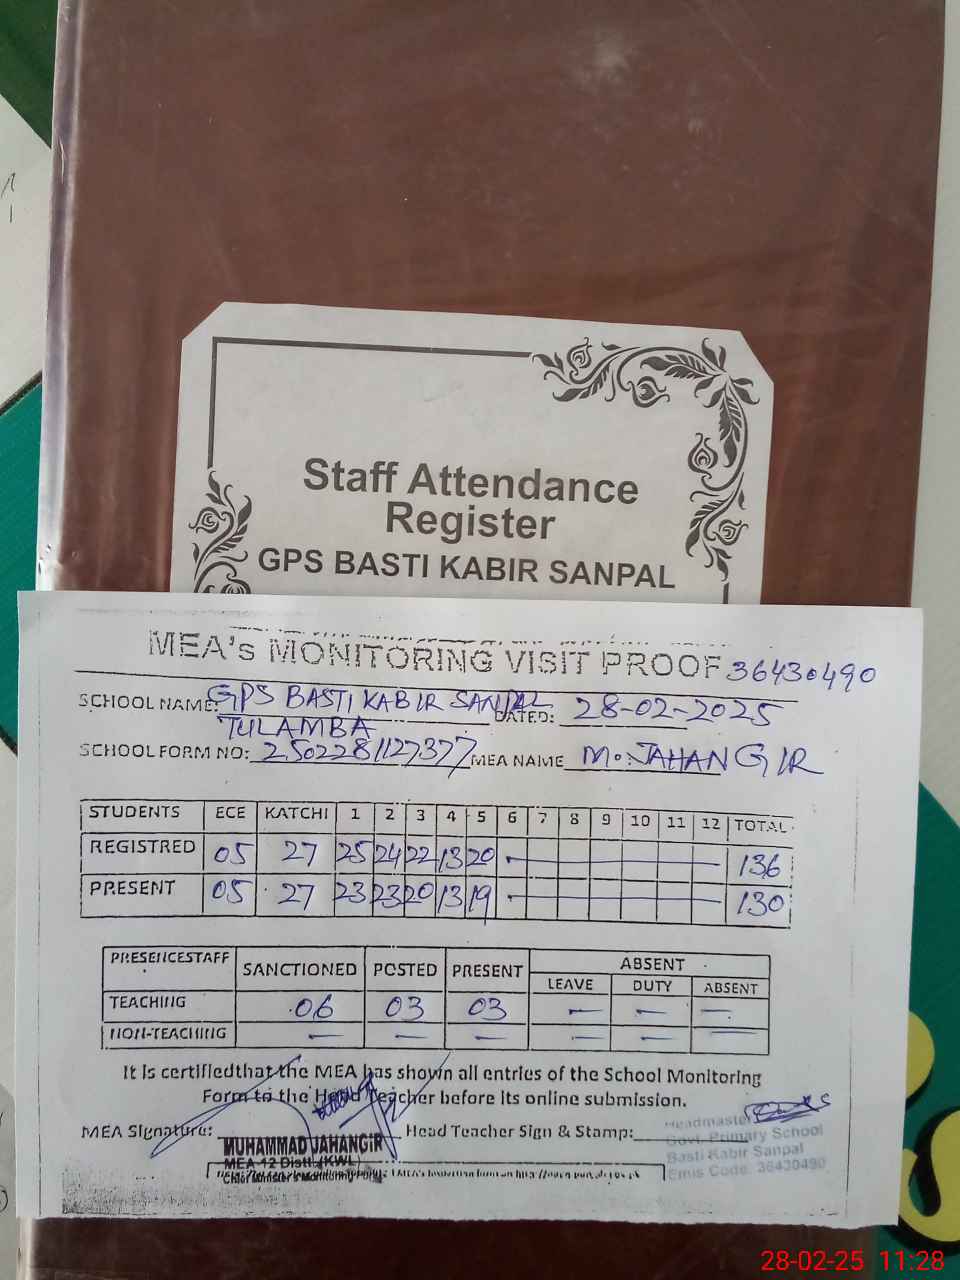 Staff Attendance
Register
GPS BASTI KABIR SANPAL
MEA's MONITORING VISIT PROOF 36430490
SCHOOL NAME: GPS BASTI KABIR SANPAL DATED: 28-02-2025
TULAMBA
SCHOOL FORM NO: 2502281127377 MEA NAME M. JAHANGIR
STUDENTS ECE KATCHI 1 2 3 4 5 6 7 8 9 10 11 12 TOTAL
REGISTRED 05 27 25 24 22 13 20 136
PRESENT 05 27 23 23 20 13 19 130
PRESENCESTAFF SANCTIONED POSTED PRESENT ABSENT
LEAVE DUTY ABSENT
TEACHING 06 03 03 — — —
NON-TEACHING — — — — — —
It is certifiedthat the MEA has shown all entries of the School Monitoring
Form to the Head Teacher before its online submission.
MEA Signature: Head Teacher Sign & Stamp:
MUHAMMAD JAHANGIR
MEA-12 Distt. (KWL)
Chief Minister's Monitoring Force
Headmaster
Govt. Primary School
Basti Kabir Sanpal
Emis Code. 36430490
28-02-25 11:28